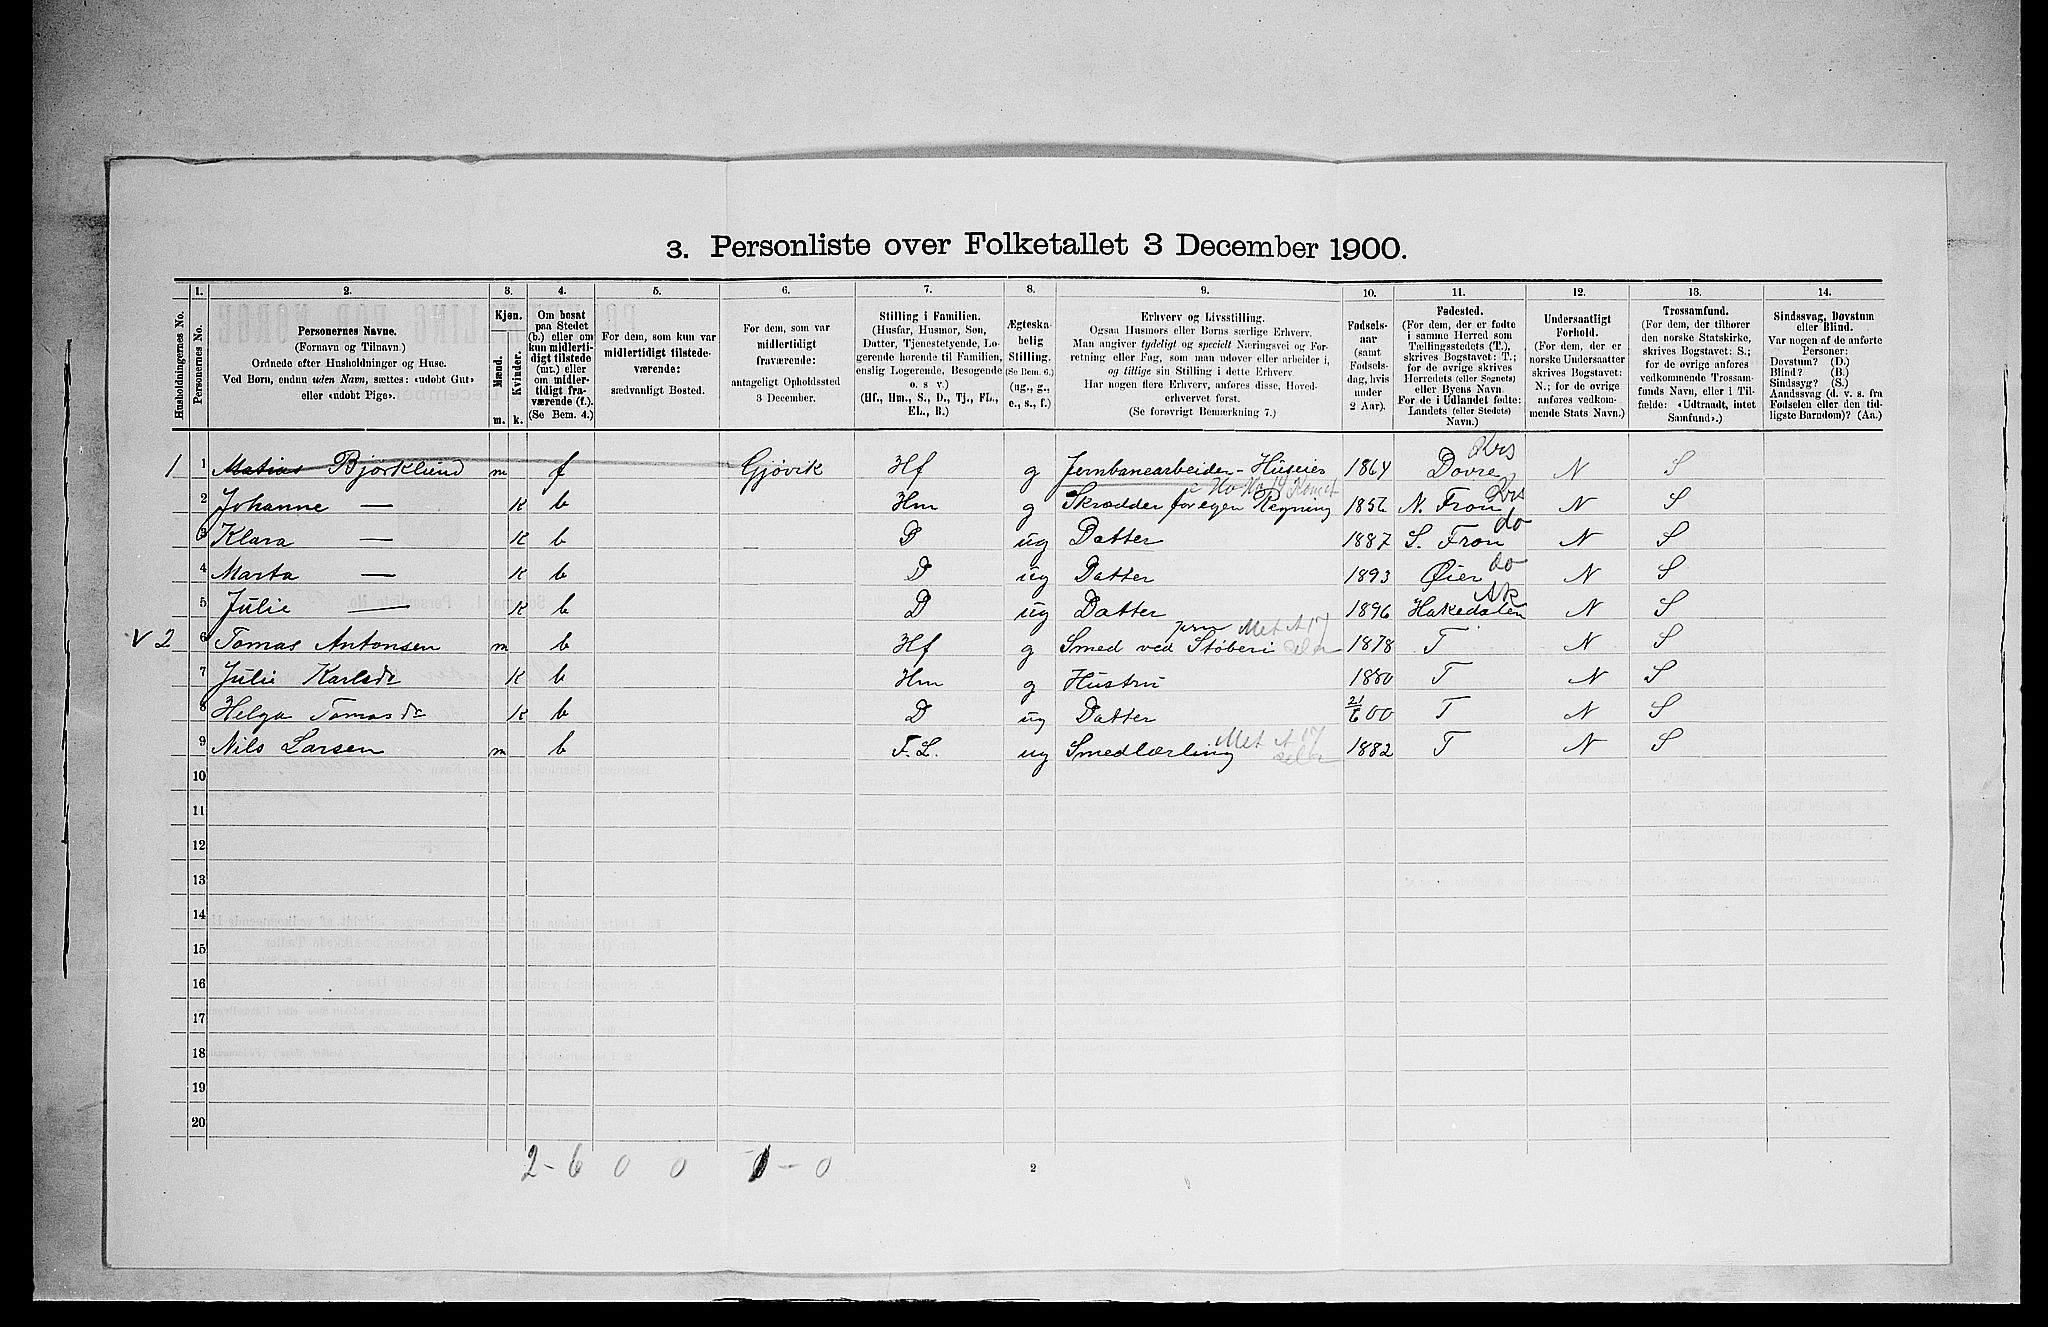 3. Personliste over Folketallet 3 December 1900.
1. 2. 3. 4. 5. 6. 7. 8. 9. 10. 11. 12. 13. 14.
Husholdningernes No.
Personernes No.
Personernes Navne.
(Fornavn og Tilnavn.)
Ordnede efter Husholdninger og Huse.
Ved Børn, endnu uden Navn, sættes: «udøbt Gut»
eller «udøbt Pige».
Kjøn.
Mænd.
Kvinder.
m. k.
Om bosat
paa Stedet
(b.) eller om
kun midlerti-
digt tilstede
(mt.) eller
om midler-
tidigt fra-
værende (f.).
(Se Bem. 4.)
For dem, som kun var
midlertidigt tilstede-
værende:
sædvanligt Bosted.
For dem, som var
midlertidigt
fraværende:
antageligt Opholdssted
3 December.
Stilling i Familien.
(Husfar, Husmor, Søn,
Datter, Tjenestetyende, Lo-
gerende hørende til Familien,
enslig Logerende, Besøgende
o. s. v.)
(Hf., Hm., S., D., Tj., FL.,
EL., B.)
Ægteska-
belig
Stilling.
(Se Bem. 6.)
(ug., g.,
e., s., f.)
Erhverv og Livsstilling.
Ogsaa Husmors eller Børns særlige Erhverv.
Man angiver tydeligt og specielt Næringsvei og For-
retning eller Fag, som man udøver eller arbeider i,
og tillige sin Stilling i dette Erhverv.
Har nogen flere Erhverv, anføres disse, Hoved-
erhvervet først.
(Se forøvrigt Bemærkning 7.)
Fødsels-
aar
(samt
Fødsels-
dag, hvis
under
2 Aar).
Fødested.
(For dem, der er fødte
i samme Herred som
Tællingsstedets (T.),
skrives Bogstavet: T.;
for de øvrige skrives
Herredets (eller Sognets)
eller Byens Navn.
For de i Udlandet fødte:
Landets (eller Stedets)
Navn.)
Undersaatligt
Forhold.
(For dem, der er
norske Undersaatter
skrives Bogstavet:
N.; for de øvrige
anføres vedkom-
mende Stats Navn.)
Trossamfund.
(For dem, der tilhører
den norske Statskirke,
skrives Bogstavet: S.;
for de øvrige anføres
vedkommende Trossam-
funds Navn, eller i Til-
fælde: «Udtraadt, intet
Samfund».)
Sindssvag, Døvstum
eller Blind.
Var nogen af de anførte
Personer:
Døvstum? (D.)
Blind? (B.)
Sindssyg? (S.)
Aandssvag (d. v. s. fra
Fødselen eller den tid-
ligste Barndom)? (Aa.)
1 1 Matias Bjørklund m f Gjøvik Hf g Jernbanearbeider - Huseier 1864 Dovre Krs N S
2 Johanne — K b Hm g Skrædder for egen Regning 1856 N. Fron Krs N S
3 Klara — K b D ug Datter 1887 S. Fron do N S
4 Marta — K b D ug Datter 1893 Øier do N S
5 Julie — K b D ug Datter 1896 Hakedalen Ak N S
v 2 6 Tomas Antonsen m b Hf g Smed ved Støberi 1878 T N S
7 Julie Karlsdr K b Hm g Hustru 1880 T N S
8 Helga Tomasdr K b D ug Datter 2/6 00 T N S
9 Nils Larsen m b F.L. ug Smedlærling 1882 T N S
10
11
12
13
14
15
16
17
18
19
20
2 - 6 0 0 1 - 0
2